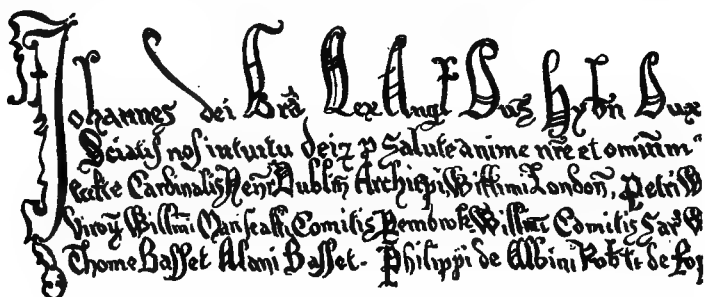 Johannes dei Grā Rex Angl Dnš Hybn Dux
Sciatis nos intuitu dei z p Salute anime nrē et omnium
eccte Cardinalis Henr Dublin Archiepi Willimi London, Petri W
Viroy Willmi Mariscalli Comitis Pembrok Willmi Comitis Sar W
Thome Basset Alani Basset. Philippi de Albini Robti de